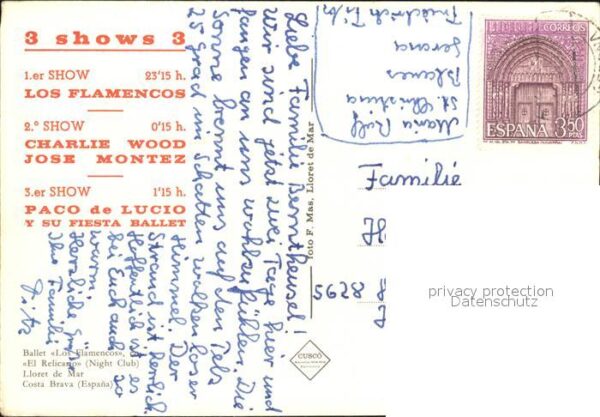 3 shows 3
1.er SHOW 23'15 h.
LOS FLAMENCOS
2.° SHOW 0'15 h.
CHARLIE WOOD
JOSE MONTEZ
3.er SHOW 1'15 h.
PACO de LUCIO
Y SU FIESTA BALLET
Ballet «Los Flamencos»,
«El Relicario» (Night Club)
Lloret de Mar
Costa Brava (España)
Liebe Familie
Wir sind jetzt zwei Tage hier und
fangen an uns wohlzufühlen. Die
Sonne brennt uns auf den Pelz
25 grad im Schatten wolkenloser
Himmel. Der
Strand ist herrlich
Hoffentlich ist es
bei Euch auch so
warm
Herzliche Grüße
Ihre Familie
Fritz
foto F. Mas, Lloret de Mar
CUSCÓ
Maria
St. Christina
Blanes
Gerona
Friedrich Fritz
CORREOS
ESPAÑA 3,50
PTAS
Familie
H
5628
privacy protection
Datenschutz